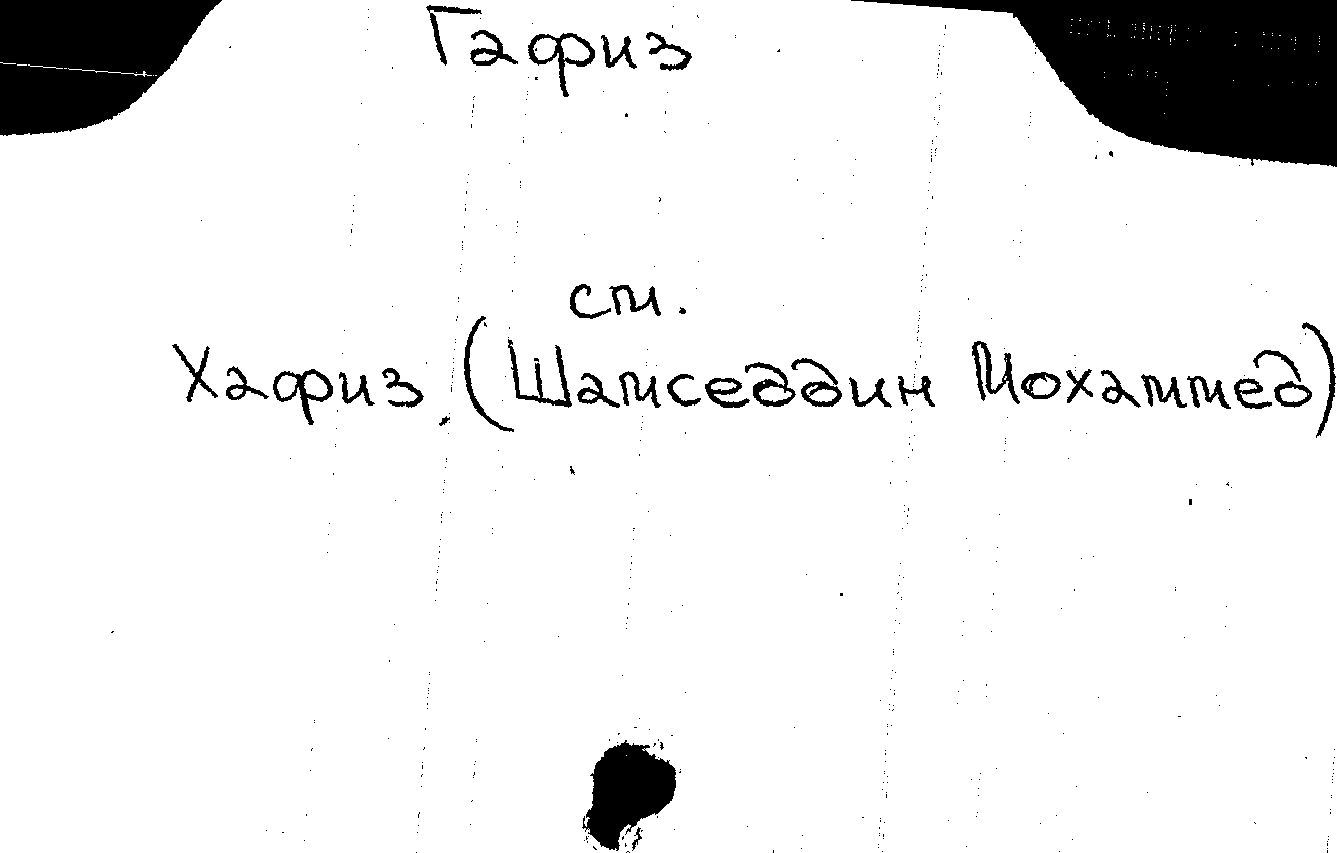 Гафиз
см.
Хафиз. (Шамседдин Мохаммед)